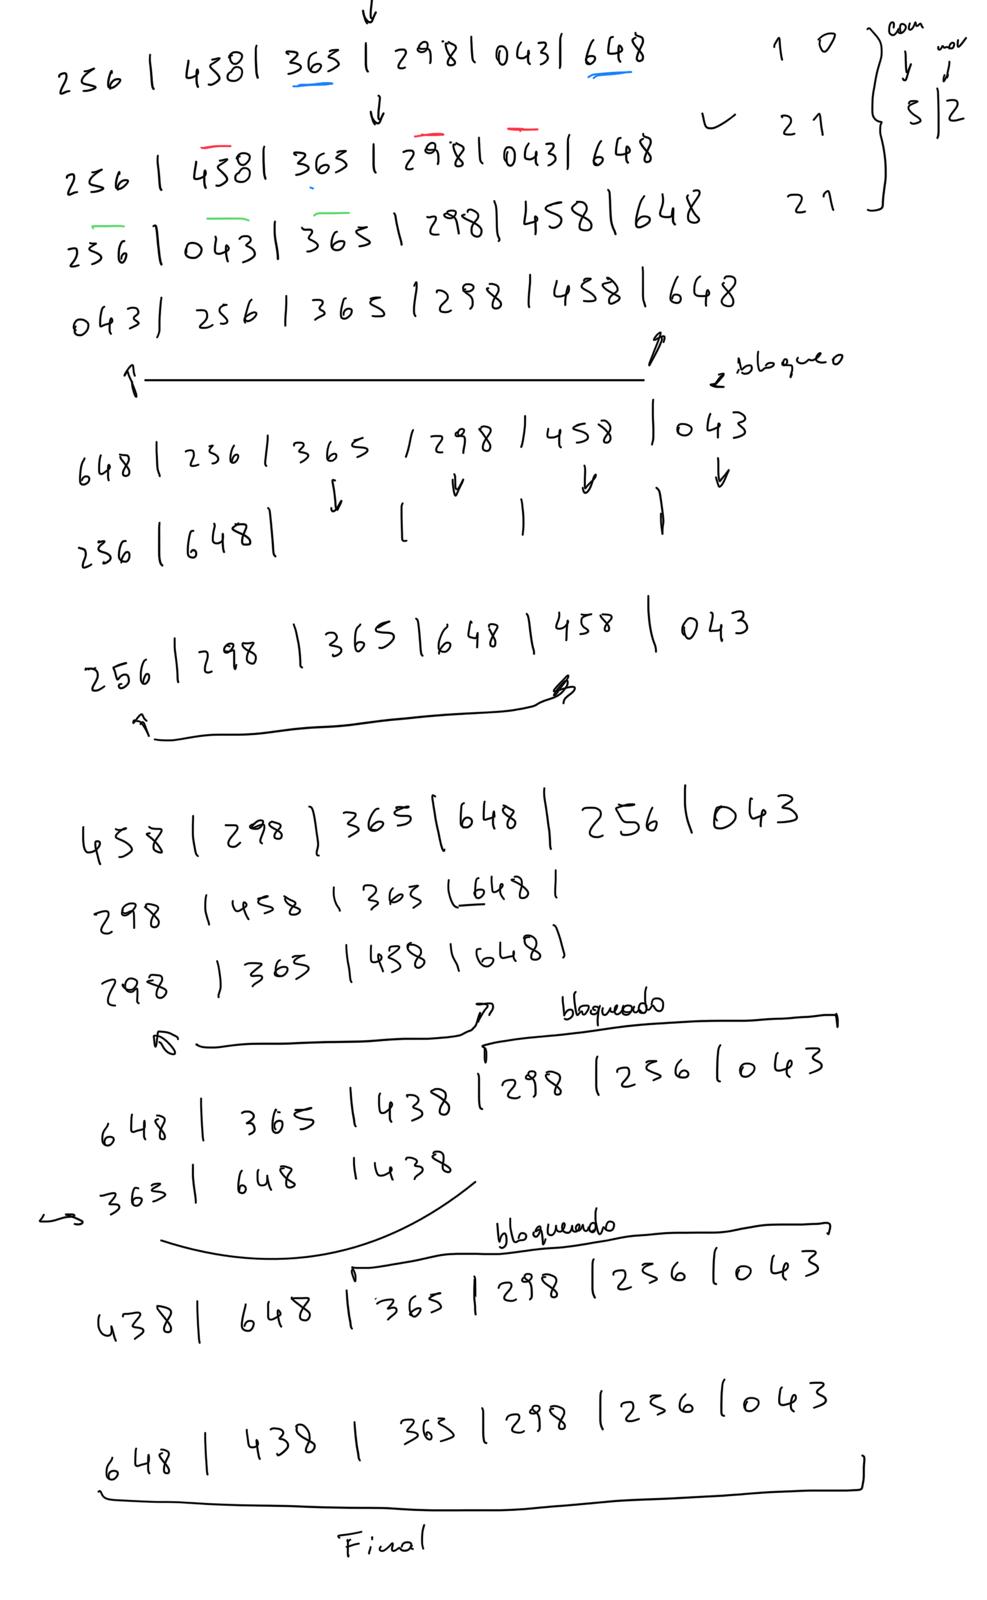 256 | 458 | 365 | 298 | 043 | 648 1 0 com mov
256 | 458 | 365 | 298 | 043 | 648 2 1 5 | 2
256 | 043 | 365 | 298 | 458 | 648 2 1
043 | 256 | 365 | 298 | 458 | 648
bloqueo
648 | 256 | 365 | 298 | 458 | 043
256 | 648 | | | |
256 | 298 | 365 | 648 | 458 | 043
458 | 298 | 365 | 648 | 256 | 043
298 | 458 | 365 | 648 |
298 | 365 | 458 | 648 |
bloqueado
648 | 365 | 438 | 298 | 256 | 043
365 | 648 | 438
bloqueado
438 | 648 | 365 | 298 | 256 | 043
648 | 438 | 365 | 298 | 256 | 043
Final